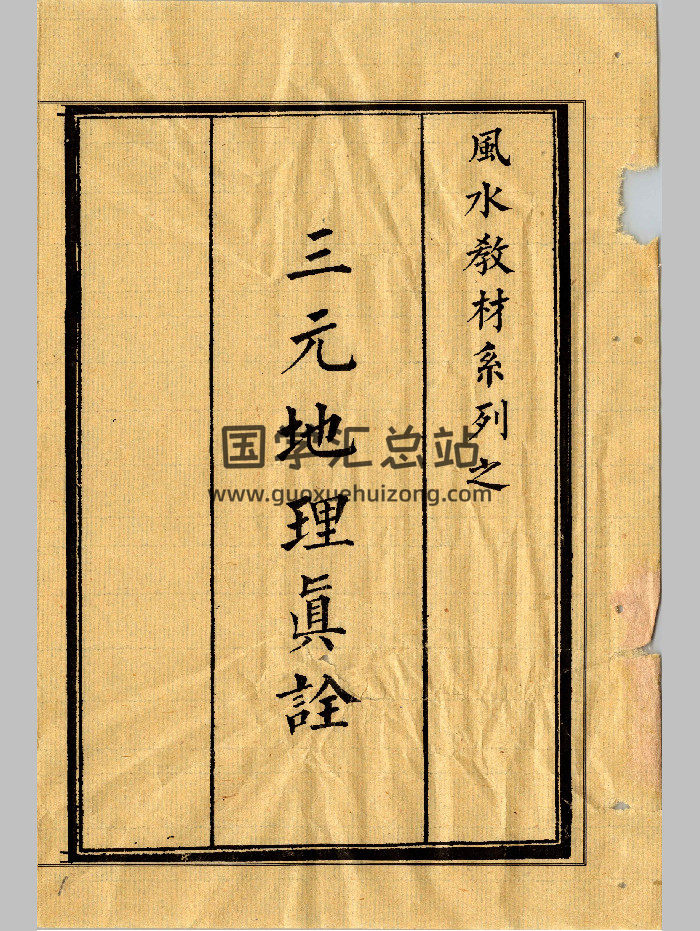 風水教材系列之
三元地理眞詮
国学汇总站
www.guoxuehuizong.com